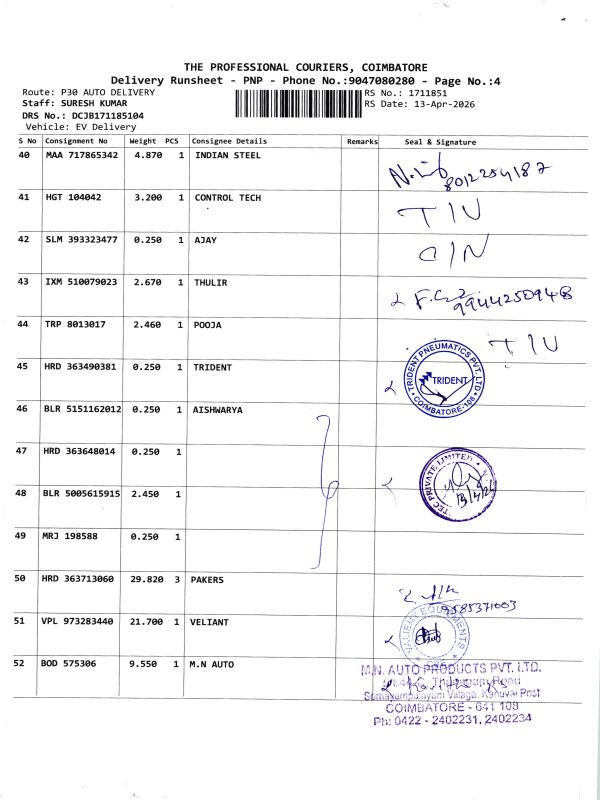 THE PROFESSIONAL COURIERS, COIMBATORE
Delivery Runsheet - PNP - Phone No.:9047080280 - Page No.:4
Route: P30 AUTO DELIVERY RS No.: 1711851
Staff: SURESH KUMAR RS Date: 13-Apr-2026
DRS No.: DCJB171185104
Vehicle: EV Delivery
S No Consignment No Weight PCS Consignee Details Remarks Seal & Signature
40 MAA 717865342 4.870 1 INDIAN STEEL
8012254187
41 HGT 104042 3.200 1 CONTROL TECH
T/U
42 SLM 393323477 0.250 1 AJAY
O/N
43 IXM 510079023 2.670 1 THULIR
9944250948
44 TRP 8013017 2.460 1 POOJA
T/U
45 HRD 363490381 0.250 1 TRIDENT
TRIDENT PNEUMATICS PVT. LTD
TRIDENT
COIMBATORE-108
46 BLR 5151162012 0.250 1 AISHWARYA
47 HRD 363648014 0.250 1
TEC PRIVATE LIMITED
13/4/26
48 BLR 5005615915 2.450 1
49 MRJ 198588 0.250 1
50 HRD 363713060 29.820 3 PAKERS
9585371003
51 VPL 973283440 21.700 1 VELIANT
52 BOD 575306 9.550 1 M.N AUTO
M.N. AUTO PRODUCTS PVT. LTD.
Road
Kanuvai Post
COIMBATORE - 641 108
Ph: 0422 - 2402231, 2402234